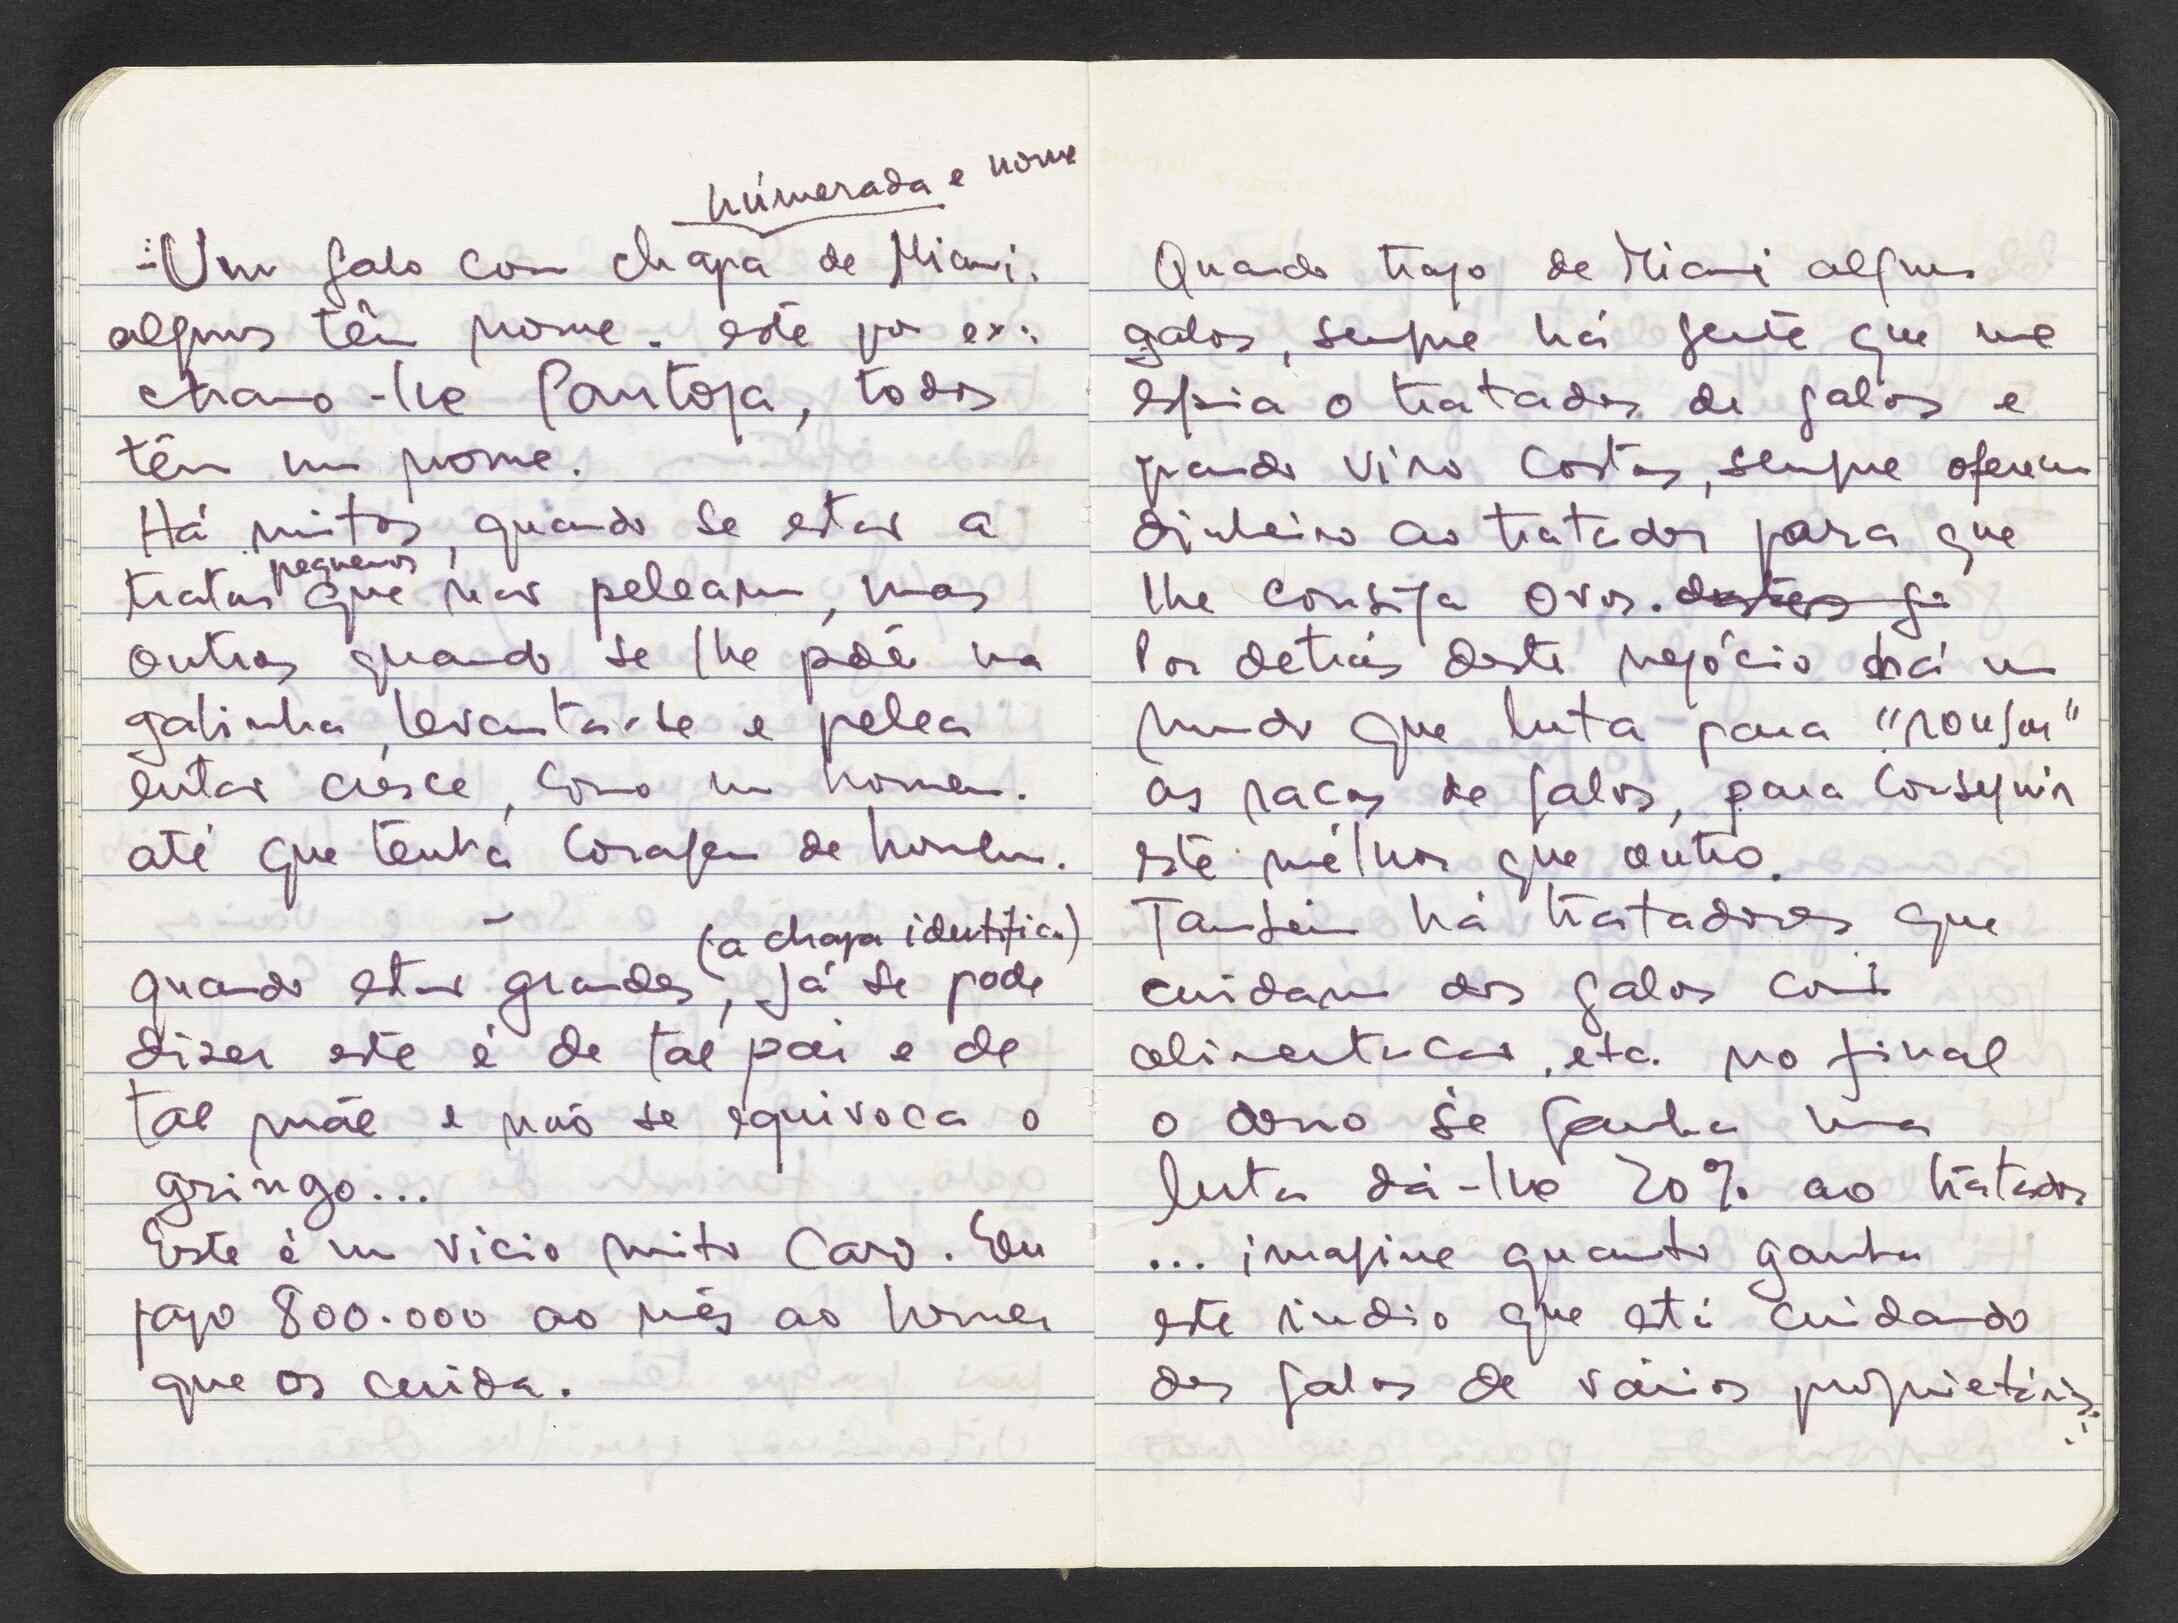 númerada e nome
-Um galo com chapa de Miami.
alguns têm nome. este por ex:
chamo-lhe Pantoja, todos
têm um nome.
Há muitos, quando se estão a
pequenos
tratar que não peleam, mas
outros quando se lhe põe na
galinha, levanta-se e pelea
então cresce, como um homem.
até que tenha coragem de homem.
-
(a chapa identifica)
quando estão grandes, já se pode
dizer este é de tal pai e de
tal mãe e não se equivoca o
gringo...
Este é um vicio muito caro. Eu
pago 800.000 ao mês ao homem
que os cuida.
Quando trago de Miami alguns
galos, sempre há gente que me
espia o tratador de galos e
quando viro costas, sempre oferecem
dinheiro ao tratador para que
lhe consiga ovos. destes ga
Por detrás deste negócio há um
mundo que luta para "roubar"
as raças de galos, para conseguir
este mélhor que outro.
Também há tratadores que
cuidam dos galos com
alimentação, etc. no final
o dono se ganha uma
luta dá-lhe 20% ao tratador
... imagine quanto ganha
este indio que está cuidando
dos galos de vários proprietários.